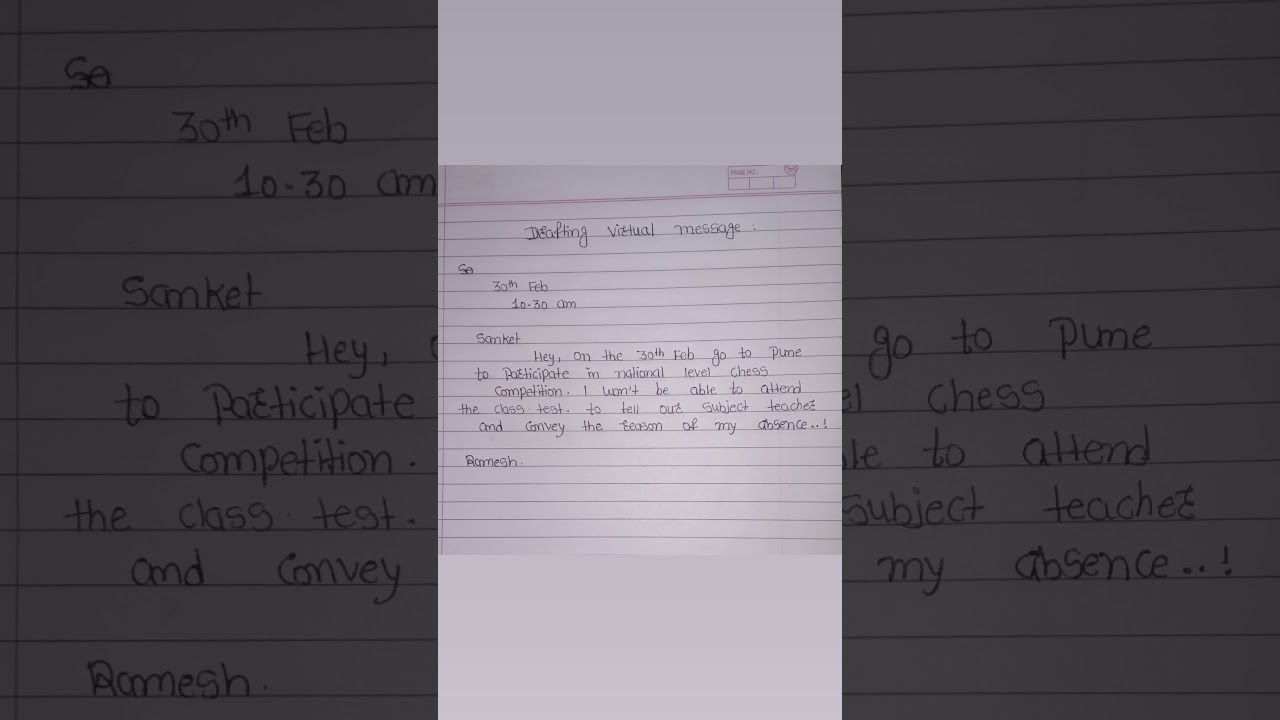 PAGE NO.:
Drafting Virtual message :
30th Feb
10-30 am
Sanket
Hey, on the 30th Feb go to Pune
to Participate in national level chess
Competition. I won't be able to attend
the class test. to tell our subject teacher
and convey the reason of my absence..!
Ramesh.